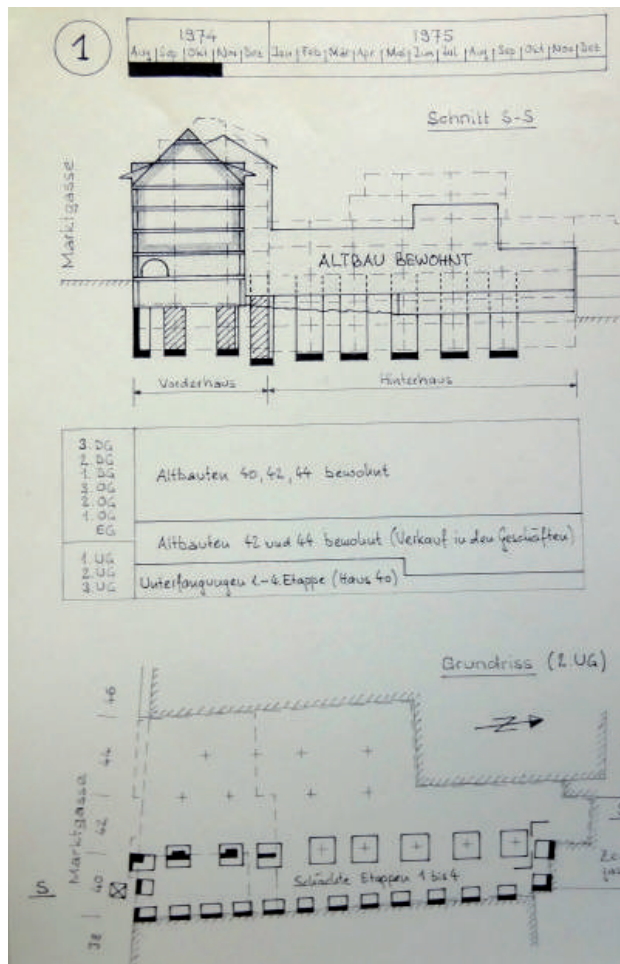 1
1974 1975
Aug Sep Okt Nov Dez Jan Feb Mär Apr Mai Jun Jul Aug Sep Okt Nov Dez
Schnitt S-S
Marktgasse
ALTBAU BEWOHNT
Vorderhaus
Hinterhaus
3. DG
2. DG
1. DG
3. OG
2. OG
1. OG
EG
1. UG
2. UG
3. UG
Altbauten 40, 42, 44 bewohnt
Altbauten 42 und 44 bewohnt (Verkauf in den Geschäften)
Unterfangungen 1.-4. Etappe (Haus 40)
Grundriss (2. UG)
Marktgasse
46
44
42
40
38
S
Schächte Etappen 1 bis 4